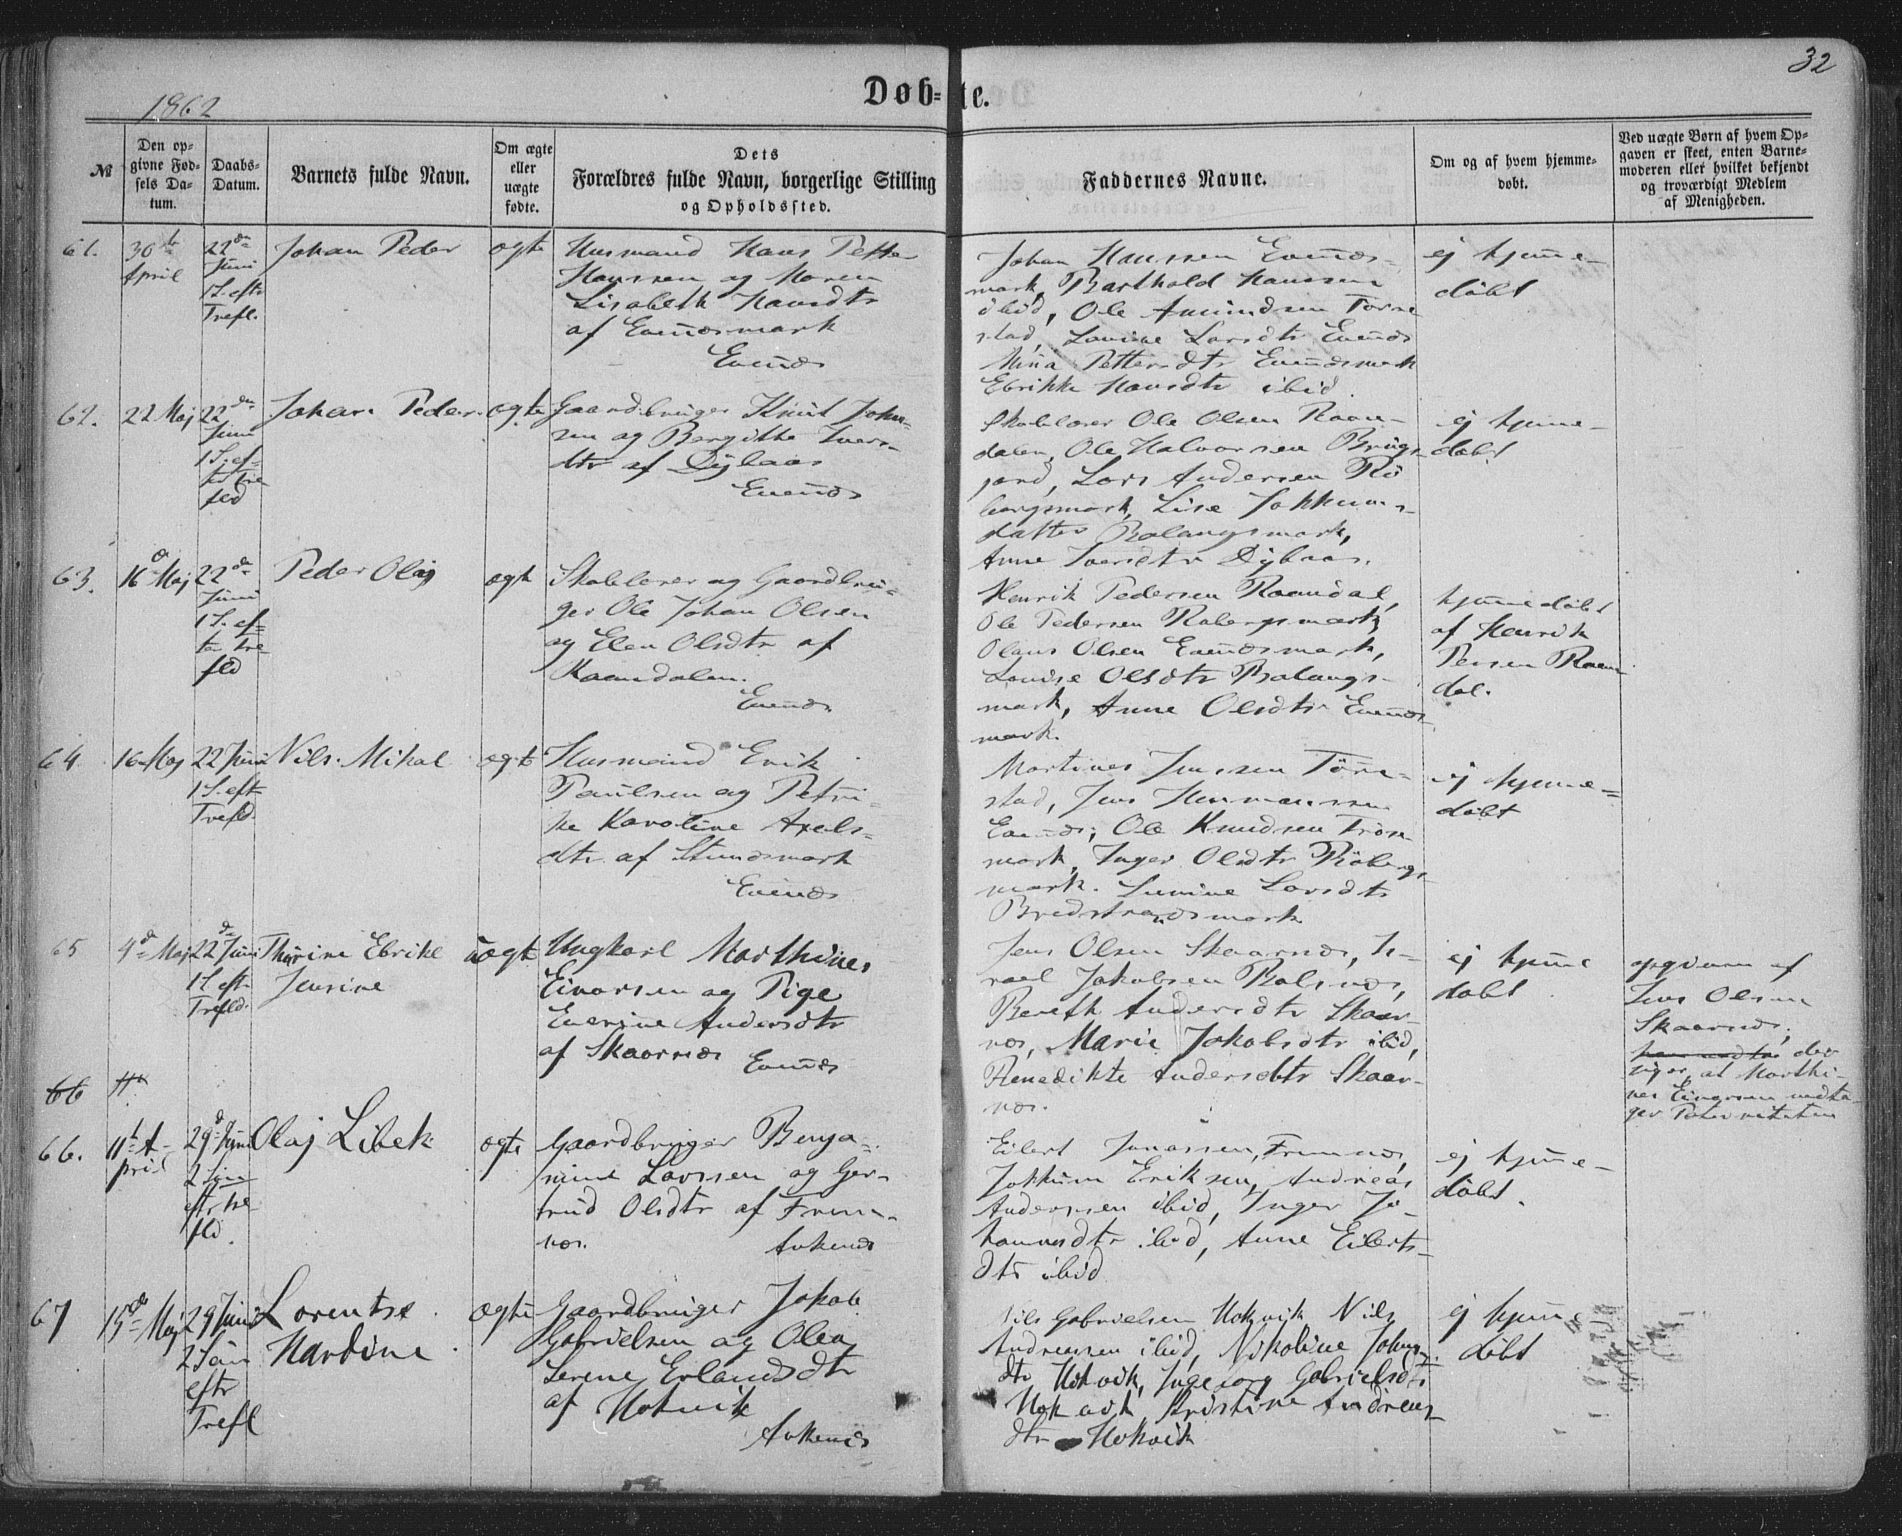 1862
Døb=te.
32
№
Den op-
givne Fød-
sels Da-
tum.
Daabs-
Datum.
Barnets fulde Navn.
Om ægte
eller
uægte
fødte.
Dets
Forældres fulde Navn, borgerlige Stilling
og Opholdssted.
Faddernes Navne.
Om og af hvem hjemme-
døbt.
Ved uægte Børn af hvem Op-
gaven er skeet, enten Barne-
moderen eller hvilket bekjendt
og troværdigt Medlem
af Menigheden.
61.
30te
April
22de
Juni
1 S. eftr
Trefl.
Johan Peder
ægte
Husmand Hans Petter
Hanssen og Maren
Lisabeth Hansdtr
af Evenæsmark
Evenæs
Johan Hanssen Evenæs-
mark, Barthold Hanssen
ibid, Ole Amundsen Tørre
stad, Lovise Larsdtr Evenæs
Mina Pettersdtr Evenæsmark
Ebrikke Hansdtr ibid.
ej hjemme-
døbt
62.
22 Maj
22de
Juni
1 S. ef-
ter tre
fld
Johan Peder.
ægte
Gaardbruger Knut John-
sen og Bergitte Iver-
dtr af Dybaas
Evenæs
Skolelærer Ole Olsen Raan-
dalen, Ole Halvorsen Bryg-
jord, Lars Andersen Rø
bergsmark, Lise Jokkums-
datter Balangsmark,
Anne Iversdtr Dybaas.
ej hjemme-
døbt
63.
16de Maj
22de
Juni
1 S. ef-
ter tre
fld
Peder Olaj
ægte
Skolelærer og Gaardbru-
ger Ole Johan Olsen
og Elen Olsdtr af
Raandalen.
Evenæs
Henrik Pedersen Raandal,
Ole Pedersen Røbergsmark,
Olaus Olsen Evenæsmark,
Lovise Olsdtr Balangs-
mark, Anne Olsdtr Evenæs
mark.
hjemmedøbt
af Henrik
Persen Raan
dal.
64
16 Maj
22 Juni
1 S. eft
Trefld.
Nils Mikal
ægte
Husmand Erik
Paulsen og Petri-
ke Karoline Axels-
dtr af Stunæsmark
Evenæs
Martines Jenssen Tørre-
stad, Jens Hermanssen
Evenæs, Ole Knudsen Tros
mark, Inger Olsdtr Røbergs
mark. Larsdtr
Bredstrandsmark
ej hjemme-
døbt
65
4de Maj
22de Juni
1 S. eft
Trefld.
Thurine Ebrike
Jensine
uægte
Ungkarl Marthines
Einarsen og Pige
Everine Andersdtr
af Skaarnæs
Evenæs
Jens Olsen Skaarnæs, Is-
rael Jakobsen Balsnæs,
Bereth Andersdtr Skaar-
næs, Marie Jakobsdtr ibid,
Benedikte Andersdtr Skaar-
næs.
ej hjemme
døbt
opgiven af
Jens Olsen
Skaarnæs,
der
siger, at Marthi-
nes Einarsen vedta-
ger Paterniteten
66
11te
66.
11te A-
pril
29de Juni
2 Søn
eftr tre
fld.
Olaj Libek
ægte
Gaardbruger Benja-
mine Larssen og Ger-
trud Olsdtr af Frem-
næs.
Ankenæs
Eilert Jonassen, Fremnæs,
Jokkum Eriksen, Andreas
Andersen ibid, Inger Jo-
hannesdtr ibid, Anne Eilerts-
dtr ibid
ej hjemme-
døbt.
67
15de Maj
29 Juni
2 Søn
eftr
Trefl
Lorentse
Hardine
ægte
Gaardbruger Jakob
Gabrielsen og Olea
Serene Erlandsdtr
af Hokvik
Ankenæs
Nils Gabrielsen Hokvik Nils
Andreassen ibid, Nikoline Johns-
dtr Hokvik, Ingeborg Gabrielsdtr
Hokvik Kristine Andreas-
dtr Hokvik
ej hjemme
døbt